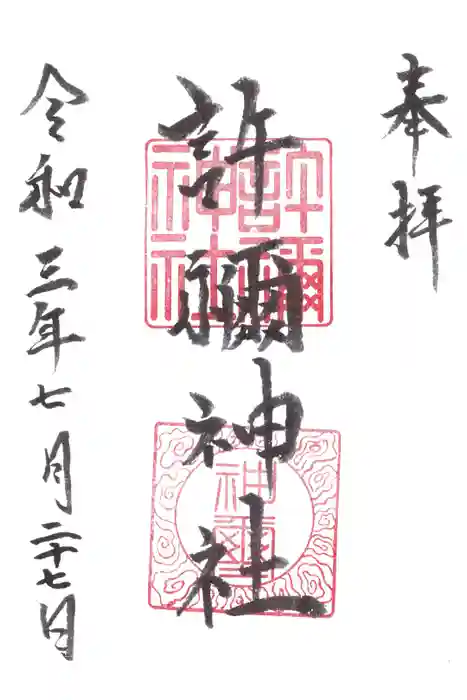 奉拝
許禰神社
許禰
神社
令和三年七月二十七日